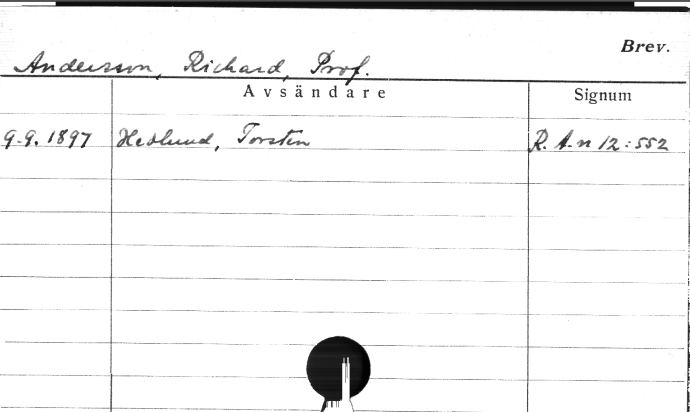 Brev.
Andersson, Richard, Prof.
Avsändare Signum
9.9. 1897 Hedlund, Torsten R. A-n 12:552